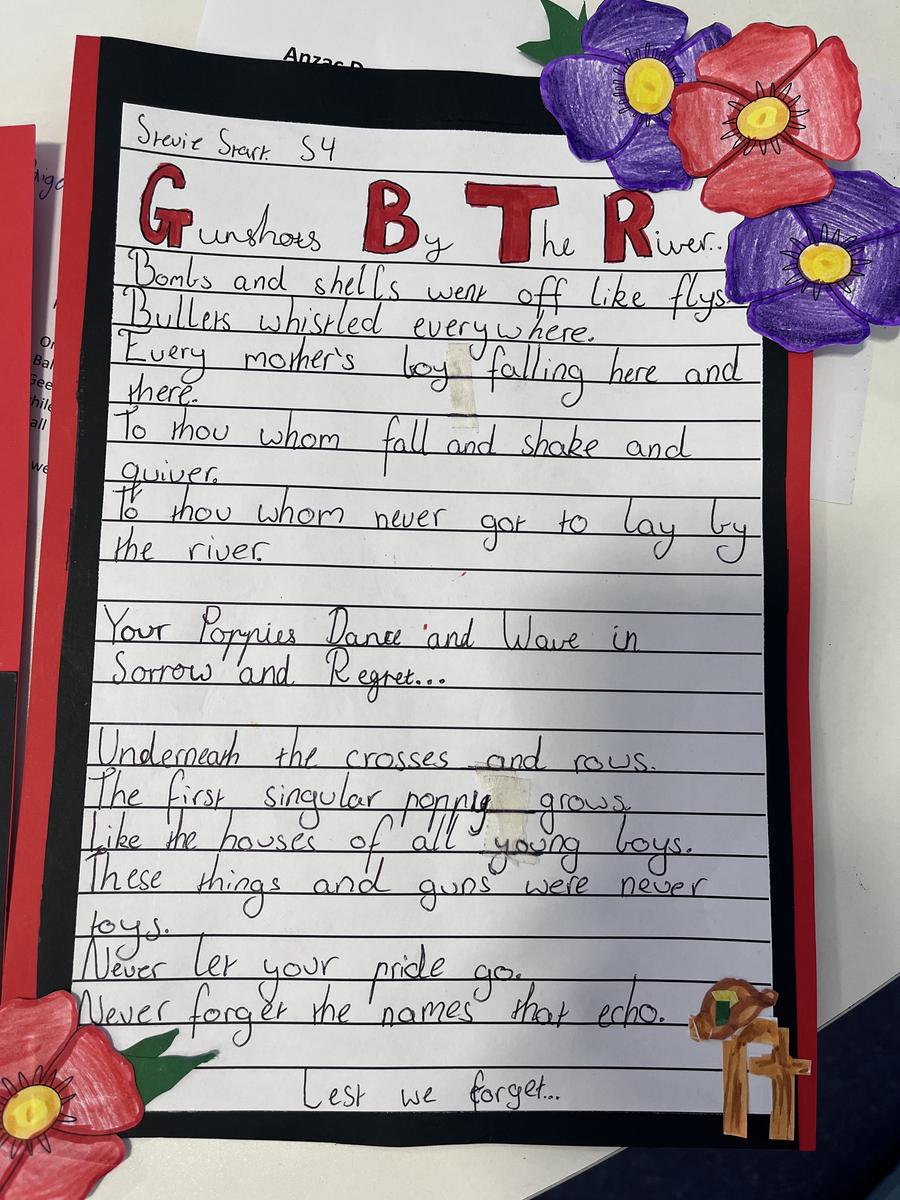 Anzac D
Stevie Start. S4
Gunshots By The River..
Bombs and shells went off like flys
Bullets whistled everywhere.
Every mother's boy falling here and
there.
To thou whom fall and shake and
quiver.
To thou whom never got to lay by
the river.
Your Poppies Dance and Wave in
Sorrow and Regret...
Underneath the crosses and rows.
The first singular poppy grows.
Like the houses of all young boys.
These things and guns were never
toys.
Never let your pride go.
Never forget the names that echo.
Lest we forget...